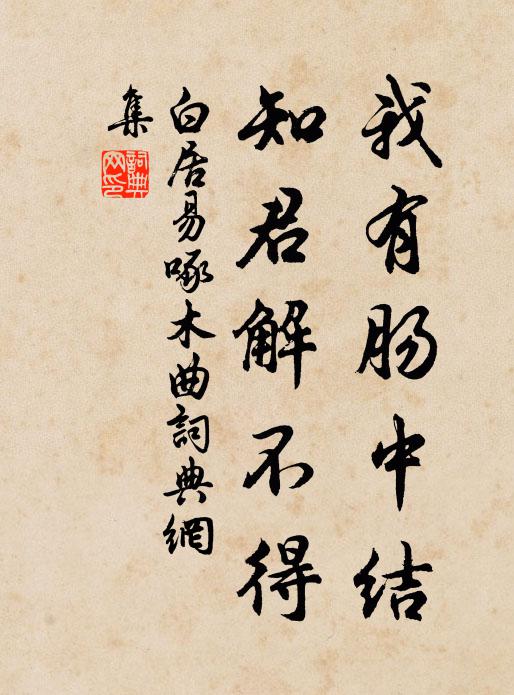 我有肠中结
知君解不得
白居易啄木曲詞典網
集
詞典网印